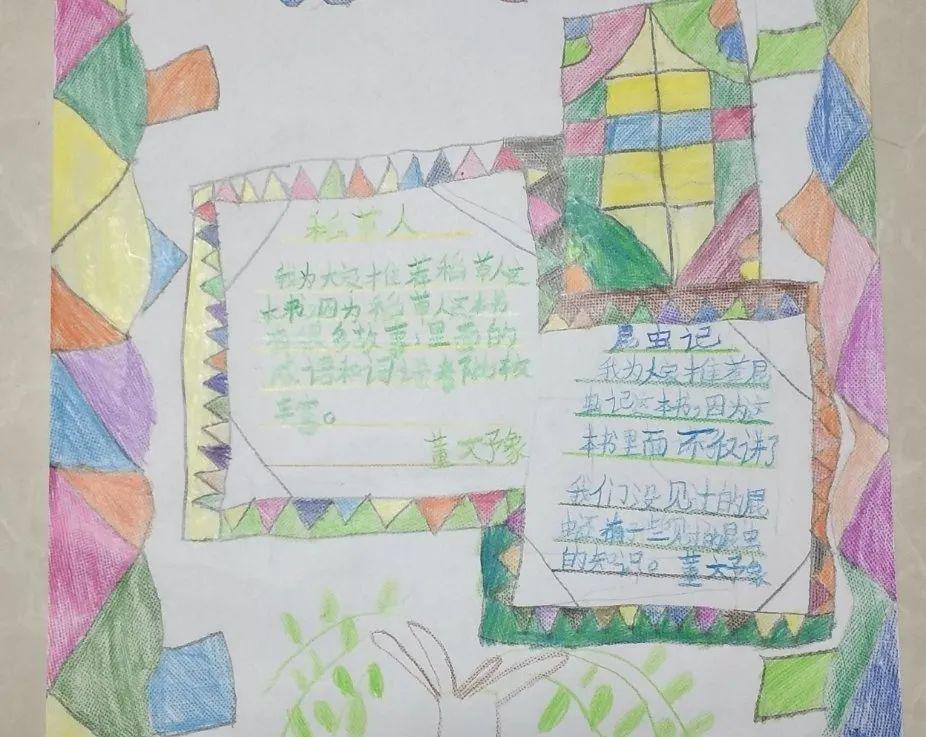 稻草人
我为大家推荐稻草人这
本书,因为稻草人这本书
有很多故事,里面的
成语和词语也比较
丰富。
董大予豪
昆虫记
我为大家推荐昆
虫记这本书,因为这
本书里面不仅讲了
我们没见过的昆
虫还有一些见过的昆虫
的知识。董大予豪